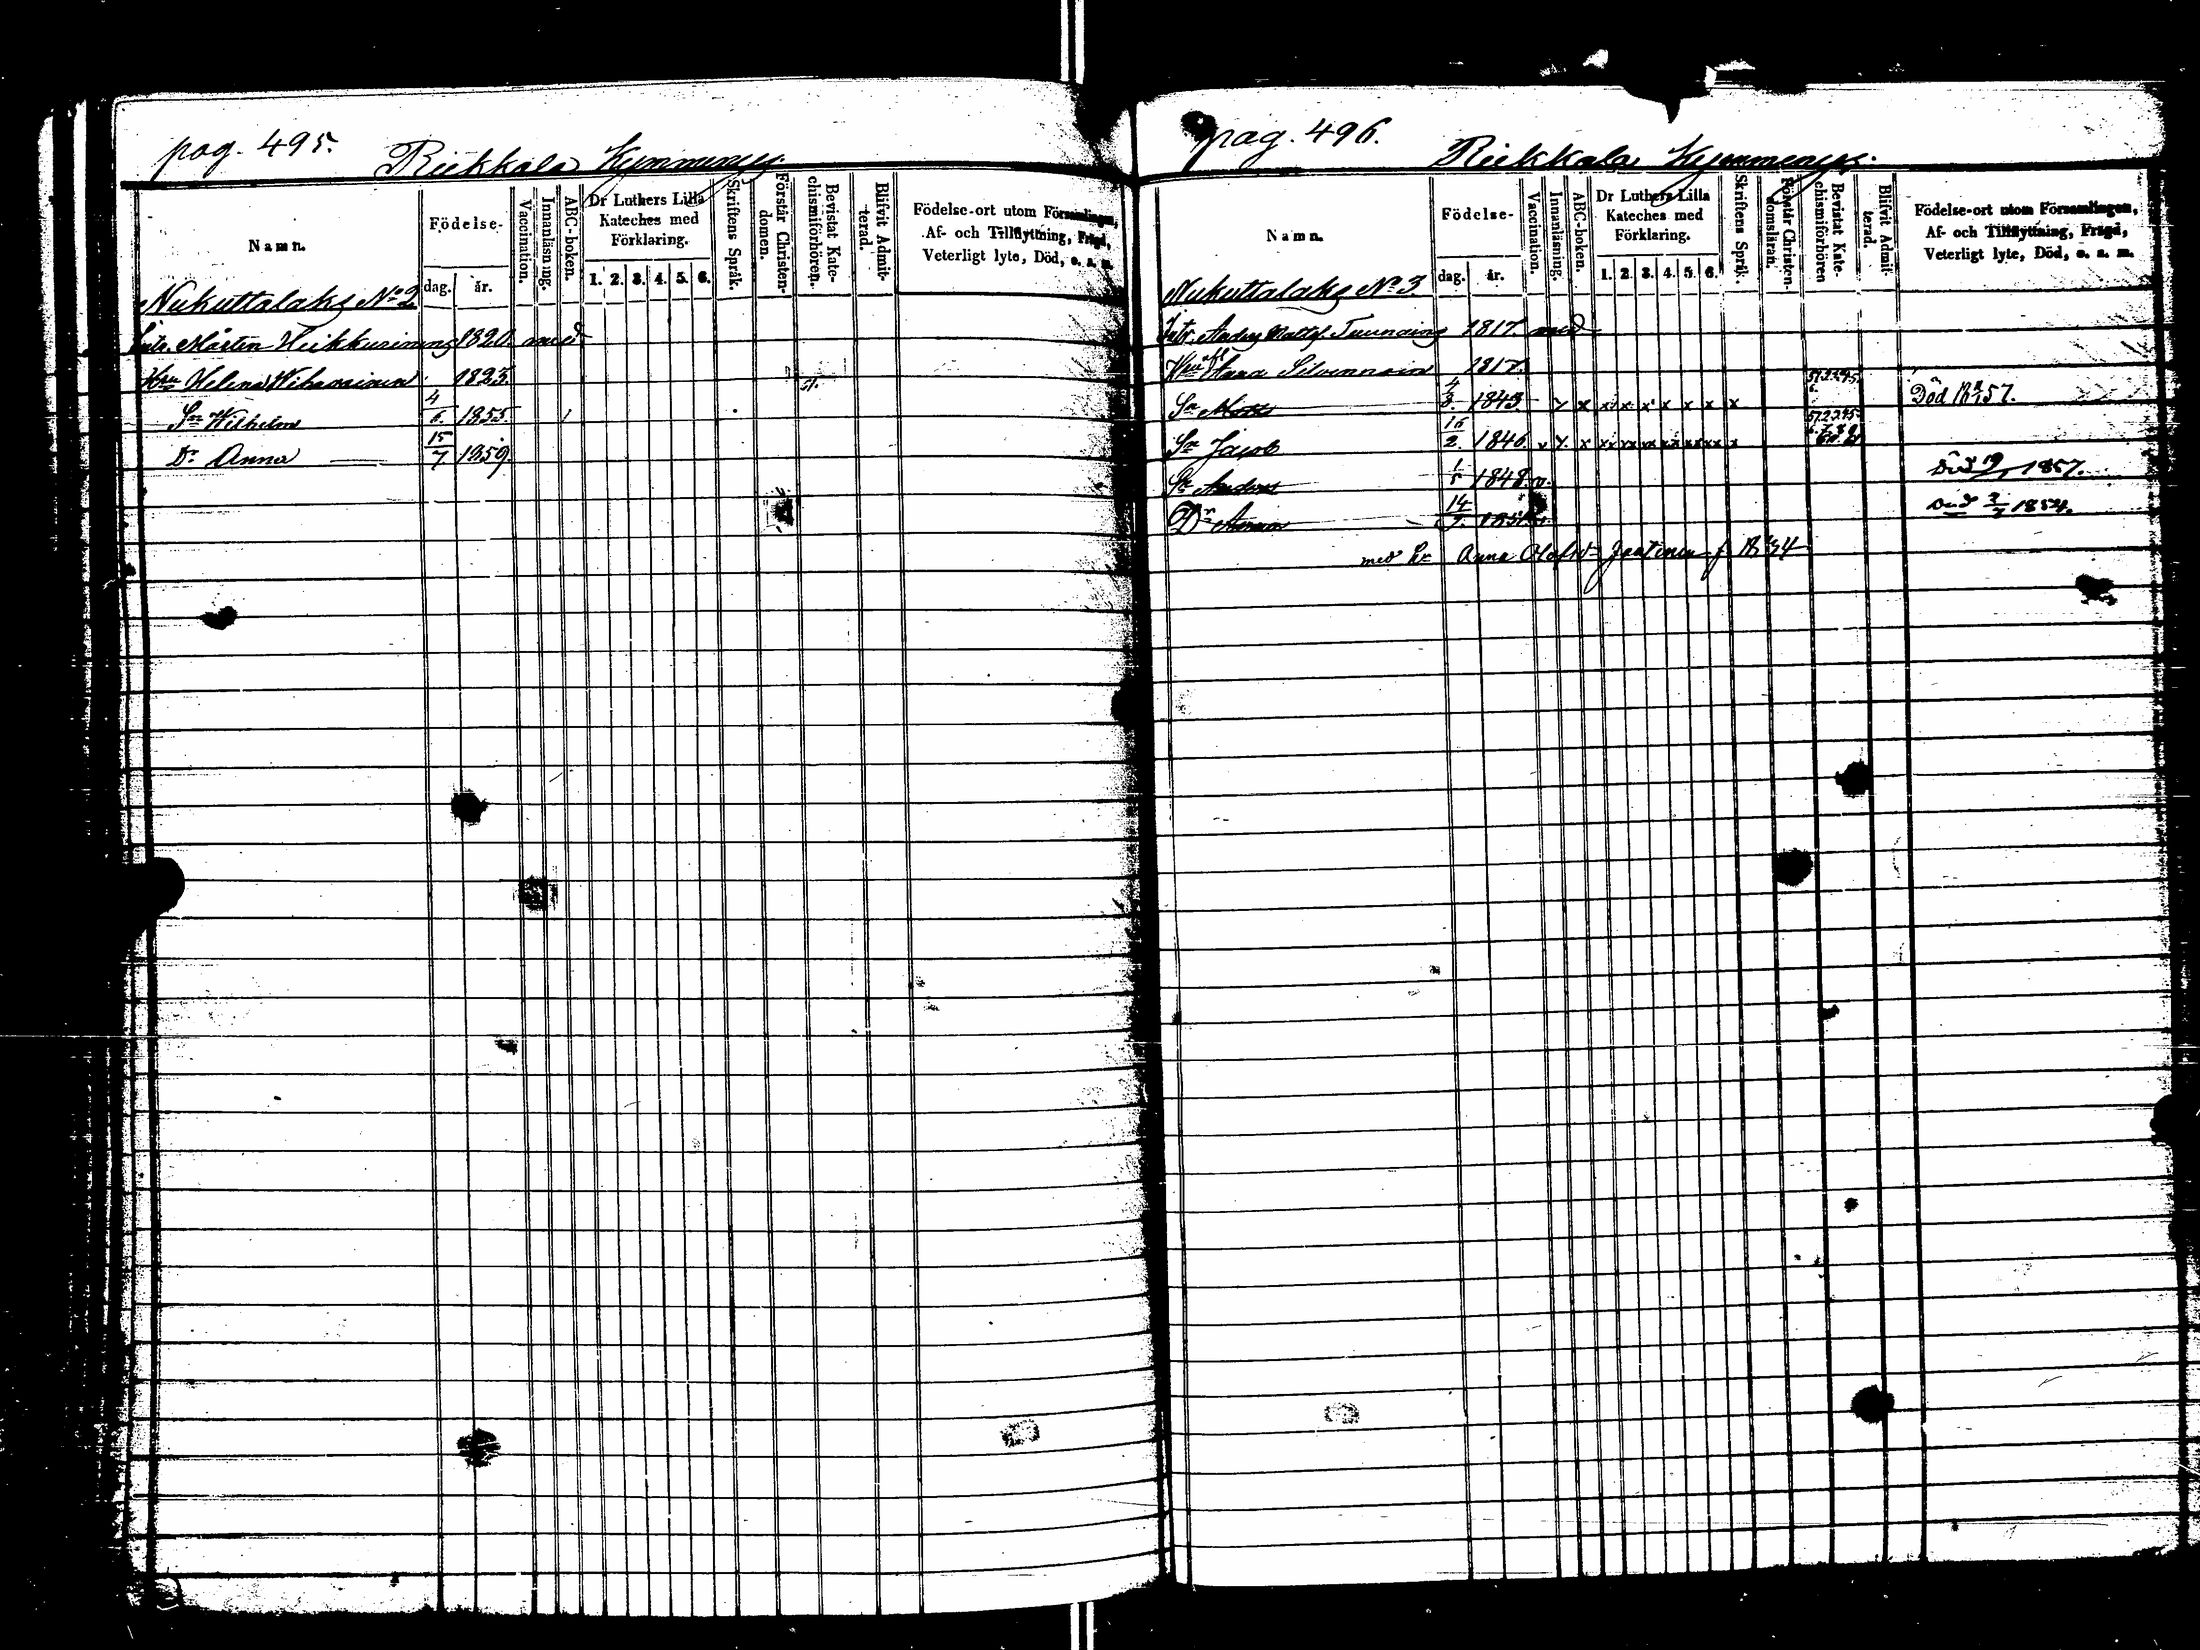 pag. 495.
Riekkala Kymmenys.
Namn.
Födelse-
dag.
år.
Vaccination.
Innanläsning.
ABC-boken.
Dr Luthers Lilla
Kateches med
Förklaring.
1. 2. 3. 4. 5. 6.
Skriftens Språk.
Förstår Christen-
domen.
Bevistat Kate-
chismiförhören.
Blifvit Admit-
terad.
Födelse-ort utom Församlingen,
Af- och Tillflyttning, Frägd,
Veterligt lyte, Död, o. s. m.
Nukuttalaks No 2.
Mårten Heikkurinen 1820. med
Hru Helena Wihavainen 1823.
Sn Wilhelm 4/6. 1855.
Dr Anna 15/7 1859.
pag. 496.
Riekkala Kymmenys.
Namn.
Födelse-
dag.
år.
Vaccination.
Innanläsning.
ABC-boken.
Dr Luthers Lilla
Kateches med
Förklaring.
1. 2. 3. 4. 5. 6.
Skriftens Språk.
Förstår Christen-
domsläran.
Bevistat Kate-
chismiförhören
Blifvit Admit-
terad.
Födelse-ort utom Församlingen,
Af- och Tillflyttning, Frägd,
Veterligt lyte, Död, o. s. m.
Nukuttalaks No 3.
Anders 1817. med
Hru Anna Silvennoin 1817.
Sn Matts 4/3. 1843. x x x x x x x x x
Sn Jacob 16/2. 1846. v x x xx xx xx xx xx xx x
Sn Anders 1/5 1848. v. Död 1857.
Dr Anna 14 Död 1854.
med Anna Jaatinen f